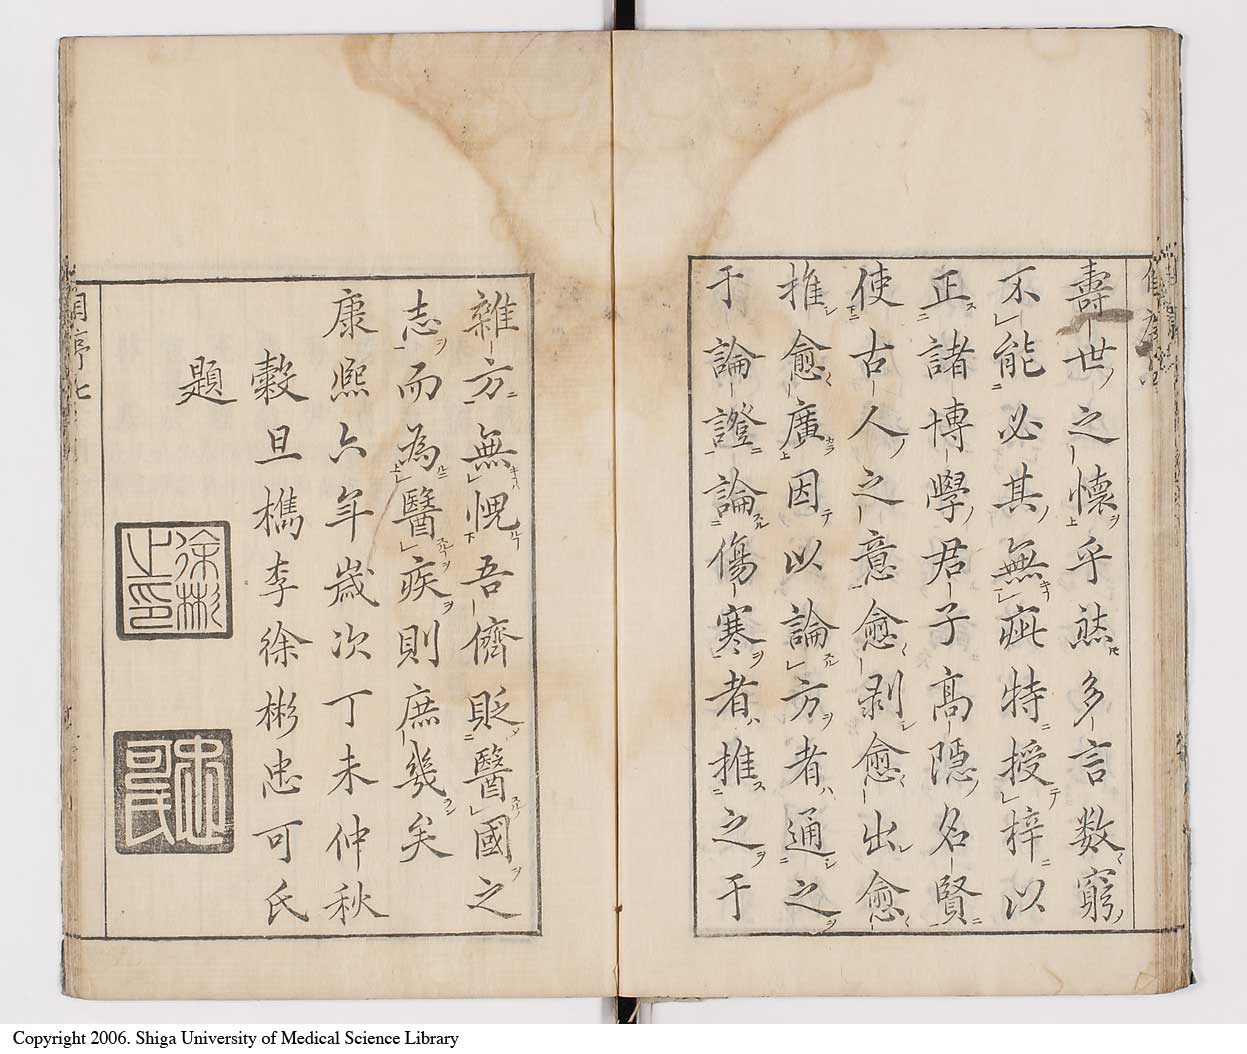 壽世之懷乎㷊多言数窮
不能必其無疵特授梓以
正諸博學君子高隱名賢
使古人之意愈剥愈出愈
推愈廣因以論方者通之
于論證論傷寒者推之于
雜方無愧吾儕貶醫國之
志而為醫疾則庶幾矣
康熙六年歲次丁未仲秋
穀旦檇李徐彬忠可氏
題
徐彬之印
忠可氏
Copyright 2006. Shiga University of Medical Science Library